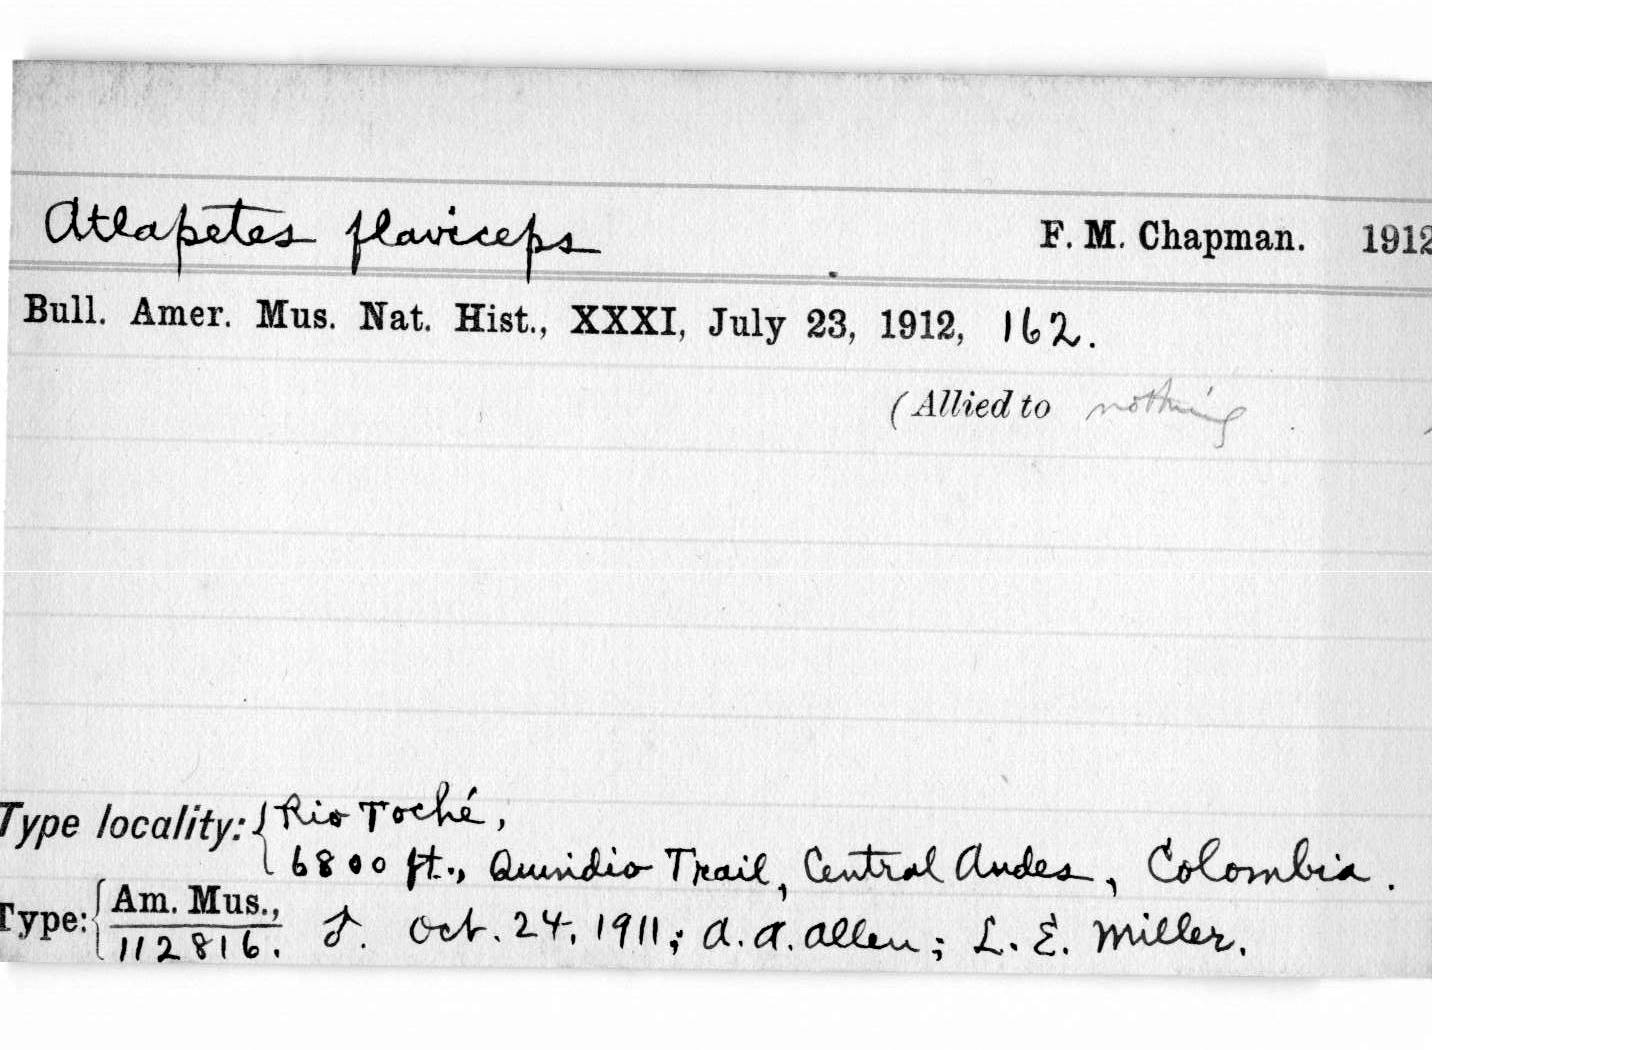 Atlapetes flaviceps F. M. Chapman. 1912
Bull. Amer. Mus. Nat. Hist., XXXI, July 23, 1912, 162.
(Allied to nothing )
Type locality: { Rio Toché,
6800 ft., Quindio Trail, Central Andes, Colombia.
Type: { Am. Mus.,
112816. ♂. Oct. 24, 1911; A. A. Allen; L. E. Miller.